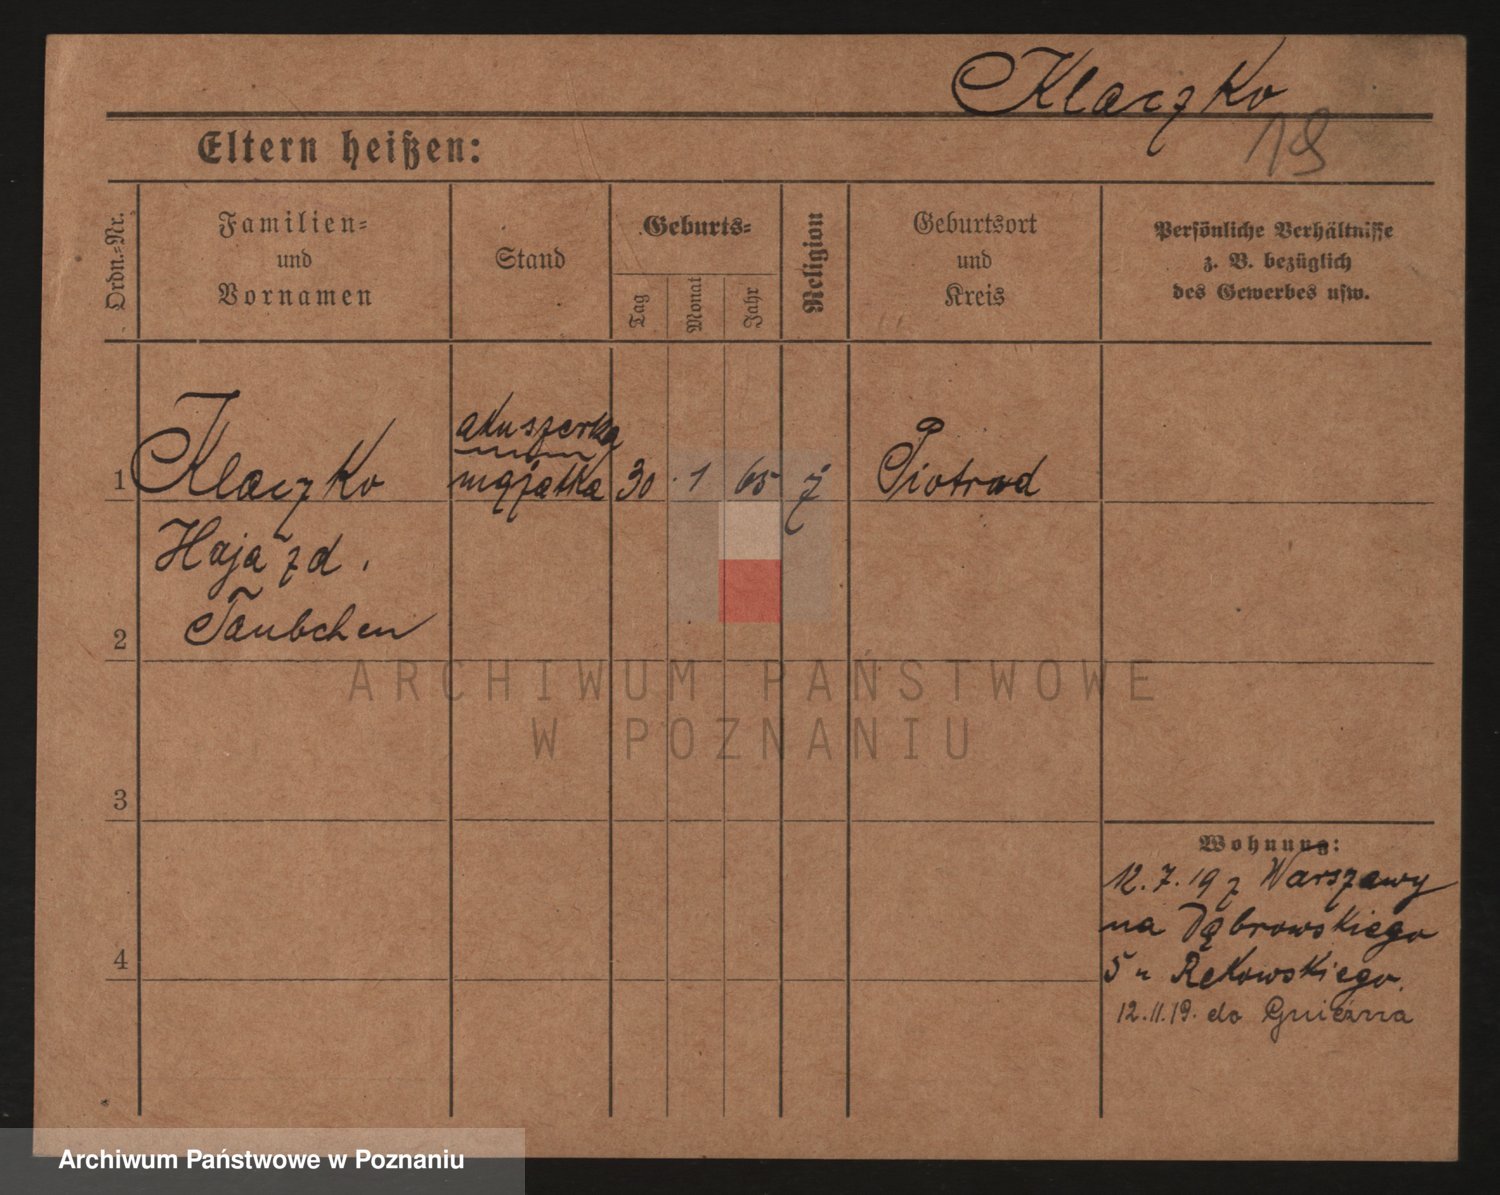 Klaczko
19
Eltern heißen:
Ordn.-Nr.
Familien-
und
Vornamen
Stand
Geburts-
Tag
Monat
Jahr
Religion
Geburtsort
und
Kreis
Persönliche Verhältnisse
z. B. bezüglich
des Gewerbes usw.
akuszerka
1 Klaczko mężatka 30 1 65 ż Piotrków
Haja zd.
2 Taubchen
3
4
Wohnung:
12.7.19 z Warszawy
na Dąbrowskiego
5 u Rekowskiego.
12.11.19. do Gniezna
ARCHIWUM PAŃSTWOWE
W POZNANIU
Archiwum Państwowe w Poznaniu